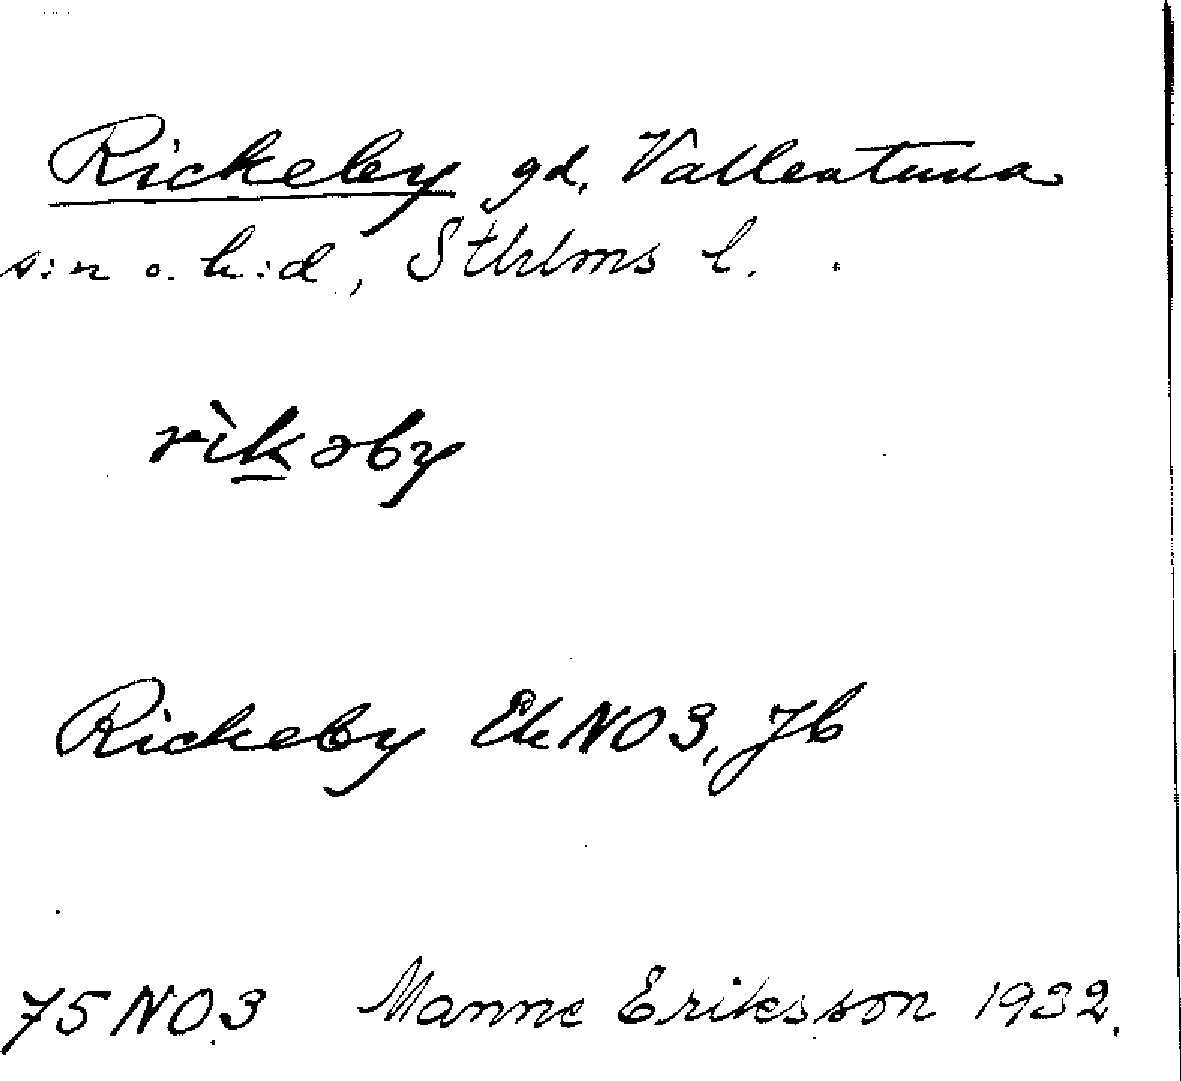 Rickeby gd, Vallentuna
s:n o. h:d, Sthlms l.
rìkəby
Rickeby Ek NO 3, Jb
75 NO 3 Manne Eriksson 1932.